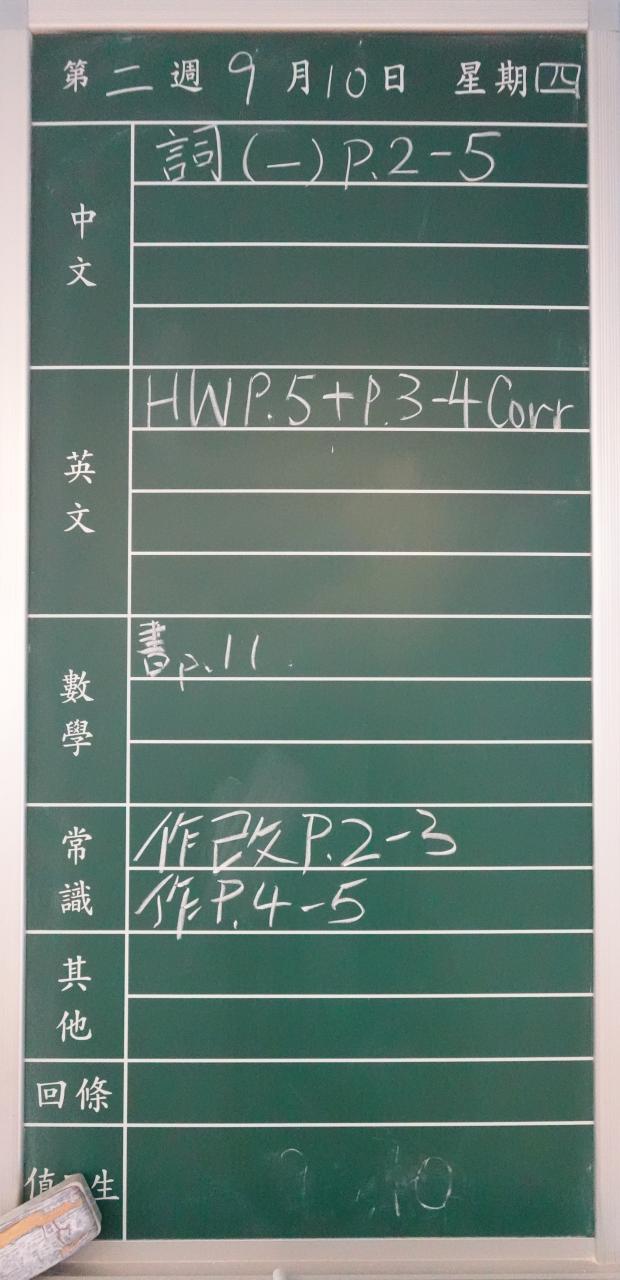 第二週 9月10日 星期四
中文
詞(一)P.2-5
英文
HWP.5+P.3-4Corr
數學
書p.11
常識
作改P.2-3
作P.4-5
其他
回條
值 生